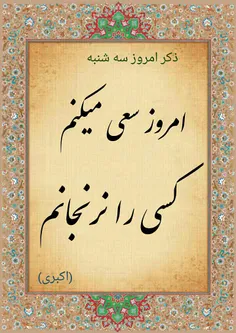 ذکر امروز سه شنبه
امروز سعی میکنم
کسی را نرنجانم
(اکبری)